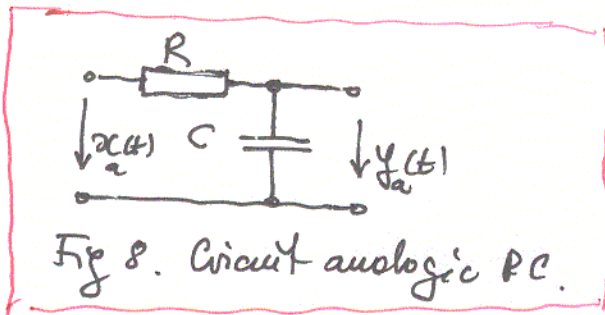 R
C
x_a(t)
y_a(t)
Fig 8. Circuit analogic RC.